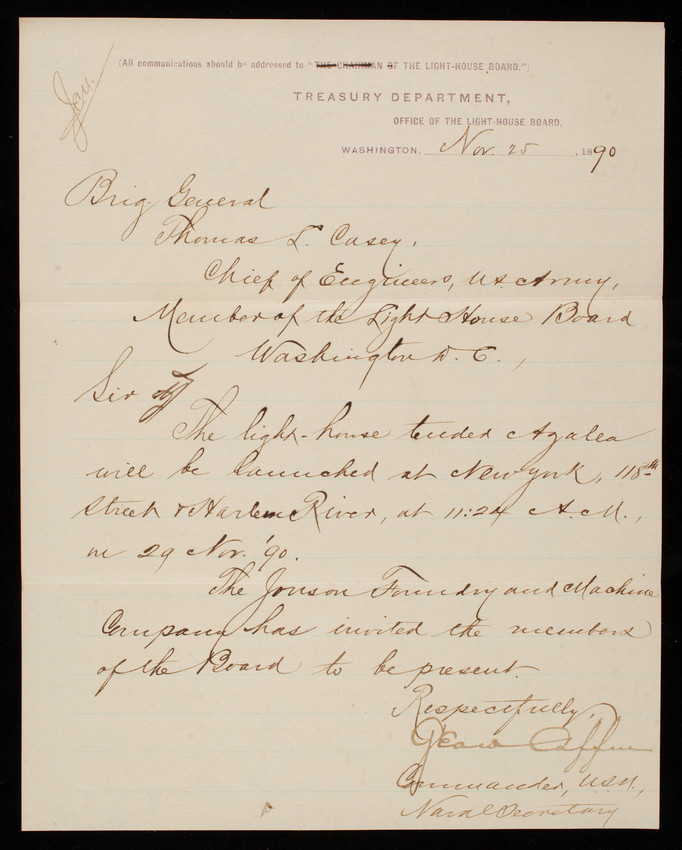 (All communications should be addressed to "THE CHAIRMAN OF THE LIGHT-HOUSE BOARD.")
TREASURY DEPARTMENT,
OFFICE OF THE LIGHT-HOUSE BOARD,
WASHINGTON, Nov. 25, 1890
Brig. General
Thomas L. Casey,
Chief of Engineers, U.S. Army,
Member of the Light House Board
Washington D. C.,
Sir
The light-house tender Azalea
will be launched at New York, 118th
Street & Harlem River, at 11:24 A.M.,
on 29 Nov. '90.
The Jonson Foundry and Machine
Company has invited the members
of the Board to be present.
Respectfully,
Coffin
Commander, U.S.N.,
Naval Secretary